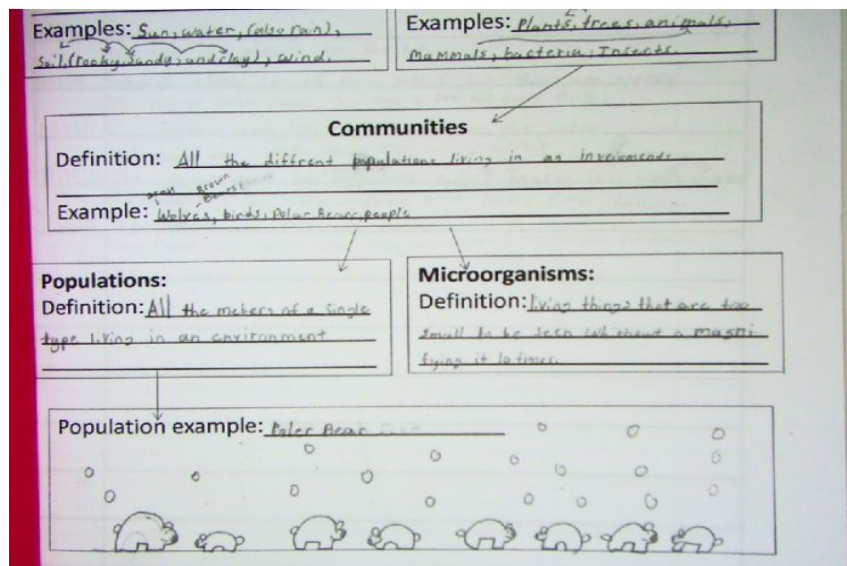 Examples: Sun, water, (also rain),
Soil, (rocky, sandy, and clay), wind.
Examples: Plants, trees, animals,
mammals, bacteria, Insects.
Communities
Definition: All the diffrent populations living in an
Brown
Bears
Example: Wolves, birds, Polar Bears, people
Populations:
Definition: All the mebers of a single
type living in an environment
Microorganisms:
Definition: living things that are too
small to be seen without a magni
fying it 10 times.
Population example: Poler Bear